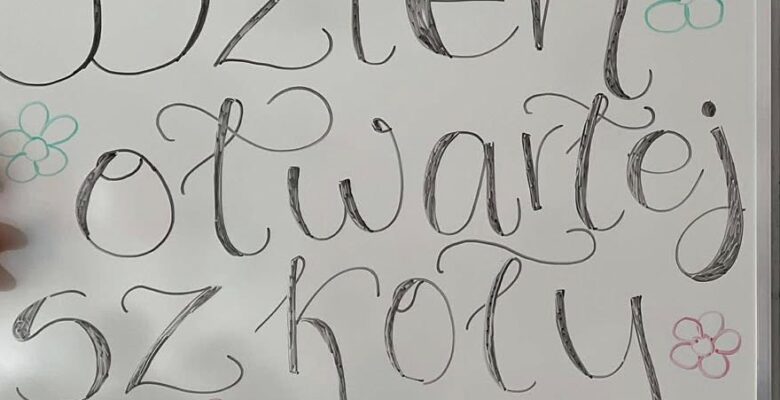 Dzień
otwartej
szkoły